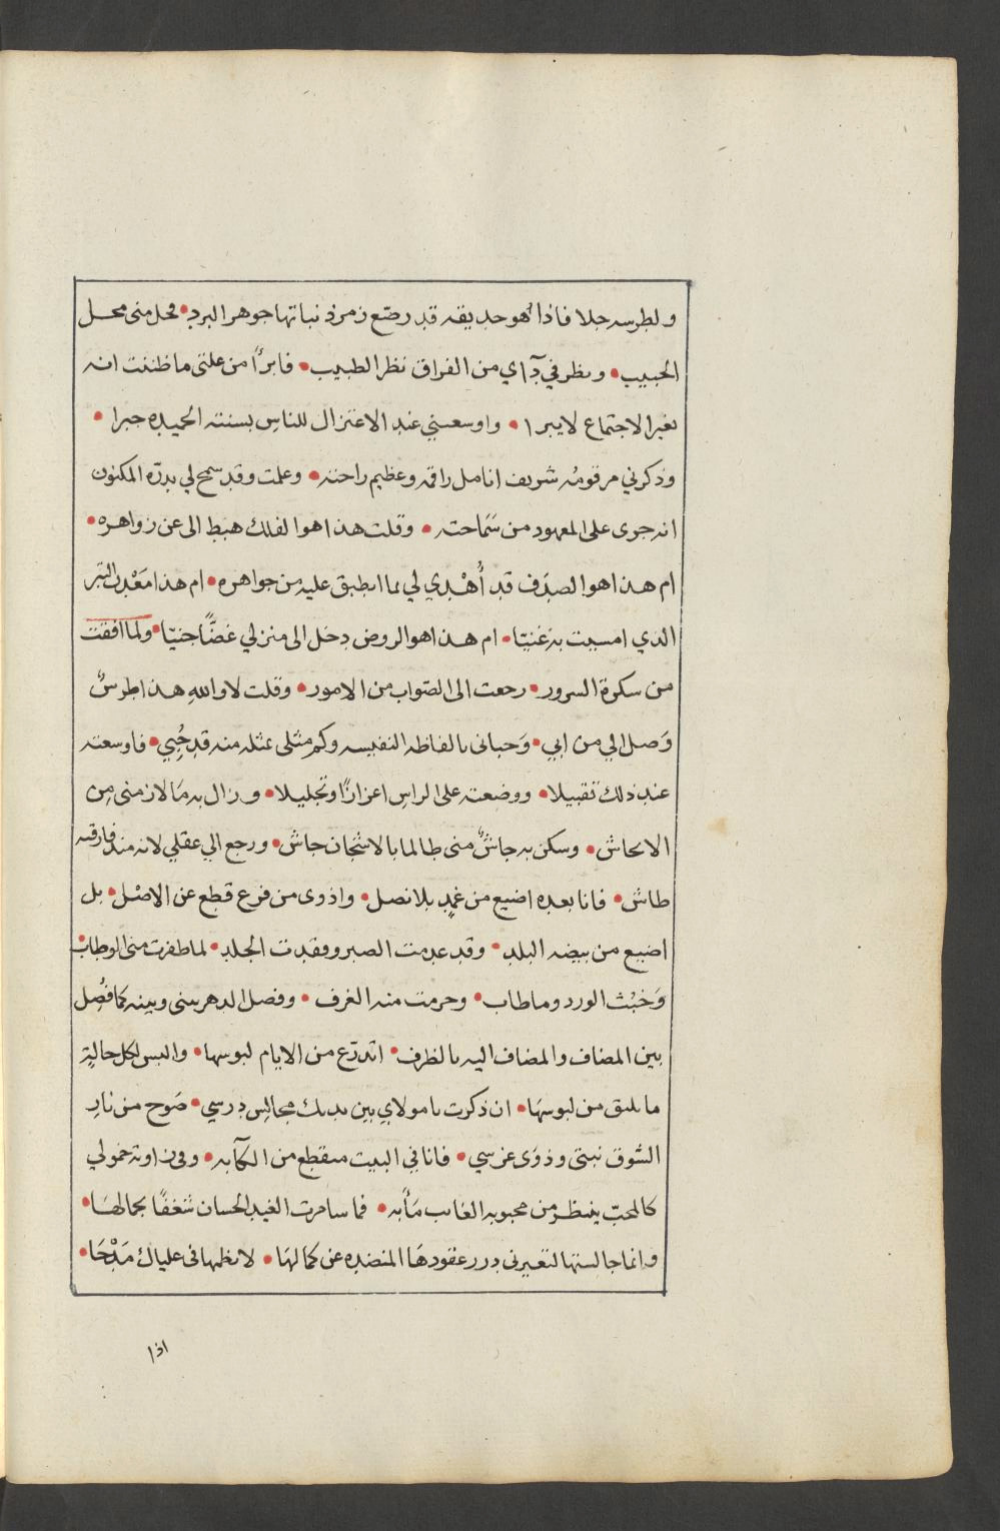 ولطرسه جلا فاذا هو حديقه قد رصّع زمرذ نباتها جوهر البرد • فحل منى محل
الحبيب • ونظر في دآاي من الفراق نظر الطبيب • فابرًا من علتى ما ظننت انه
بغير الاجتماع لا يبرا • واوسعني عند الاعتزال للناس بسنته الحميده جبرا •
وذكرني مرقومُه شريف انامل راقمه وعظيم راحته • وعلمت وقد سمح لي بدرّه المكنون
انه جرى على المعهود من سَمَاحته • وقلت هذا هو الفلك هبط الى عن زواهره •
ام هذا هو الصدَف قد أُهْدِي لي بما انطبق عليه من جواهره • ام هذا مَعْدن التبر
الذي امسيت به غنيّا • ام هذا هو الروض دخل الى منزلي غضًّا جنيّا • ولما افقت
من سكرة السرور • رجعت الى الصّواب من الامور • وقلت لا والله هذا طرسٌ
وَصل الي من ابي • وَحبانى بالفاظه النفيسه وكم مثلى بمثله منه قد حُبِي • فاوسعته
عند ذلك تقبيلا • ووضعته على الراس اعزازًا وتجليلا • وزال به مَا لازمنى من
الايحاش • وسكن به جاشٌ منى طالما بالاشجان جاش • ورجع الي عقلي لانه منذ فارقته
طاش • فانا بعده اضيع من غمدٍ بلا نصل • واذوى من فرع قطع عن الاصْل • بل
اضيع من بيضه البلد • وقد عدمت الصبر وفقدت الجلد • لما صفرت منى الوطابْ
وَخبُث الورد وما طاب • وحرمت منه الغرف • وفصل الدهر بينى وبينه كما فُصِل
بين المضاف والمضاف اليه بالظرف • اتدرّع من الايام لبوسها • والبس لكل حالةٍ
ما يليق من لبوسهَا • ان ذكرت يا مولاي بين يديك مجالس درسي • صَوح من نارِ
الشوق نبتى وذوَى غرسي • فانا في البيت منقطع من الكآبه • وفى زاوية خمولي
كالمحبّ ينتظر من محبوبه الغائب مَآبه • فما سامرت الغيد الحسان شغفًا بجمالهَا •
وانما جالستها لتعيرنى درر عقودهَا المنضده عن كمالهَا • لانظمها فى علياك مَدْحَا •
اذا